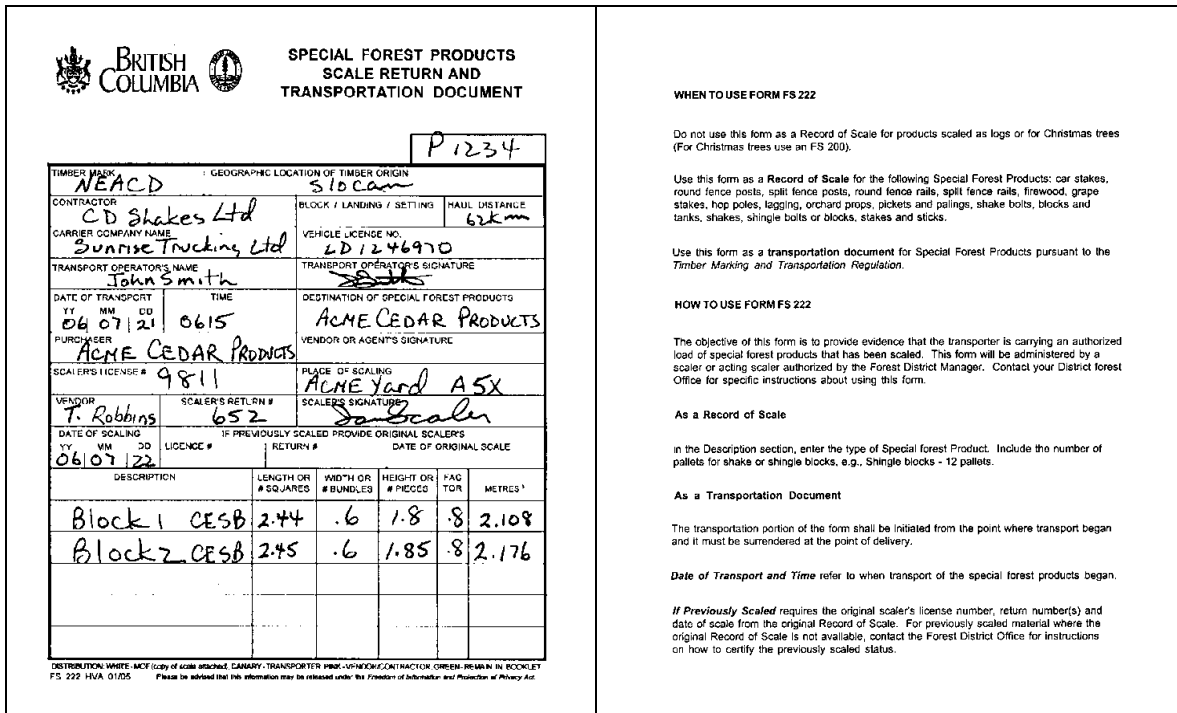 BRITISH
COLUMBIA
SPECIAL FOREST PRODUCTS
SCALE RETURN AND
TRANSPORTATION DOCUMENT
P 1234
TIMBER MARK GEOGRAPHIC LOCATION OF TIMBER ORIGIN
NEACD Slocan
CONTRACTOR BLOCK / LANDING / SETTING HAUL DISTANCE
CD Shakes Ltd 62km
CARRIER COMPANY NAME VEHICLE LICENSE NO.
Sunrise Trucking Ltd LD1246970
TRANSPORT OPERATOR'S NAME TRANSPORT OPERATOR'S SIGNATURE
John Smith
DATE OF TRANSPORT TIME DESTINATION OF SPECIAL FOREST PRODUCTS
YY MM DD
06 07 21 0615 ACME CEDAR PRODUCTS
PURCHASER VENDOR OR AGENT'S SIGNATURE
ACME CEDAR PRODUCTS
SCALER'S LICENSE # PLACE OF SCALING
9811 ACME Yard A5X
VENDOR SCALER'S RETURN # SCALER'S SIGNATURE
T. Robbins 652 Jan Scaler
DATE OF SCALING IF PREVIOUSLY SCALED PROVIDE ORIGINAL SCALER'S
YY MM DD LICENCE # RETURN # DATE OF ORIGINAL SCALE
06 07 22
DESCRIPTION LENGTH OR # SQUARES WIDTH OR # BUNDLES HEIGHT OR # PIECES FAC TOR METRES³
Block 1 CESB 2.44 .6 1.8 .8 2.108
Block 2 CESB 2.45 .6 1.85 .8 2.176
DISTRIBUTION: WHITE - MOF (copy of scale attached), CANARY - TRANSPORTER PINK - VENDOR/CONTRACTOR, GREEN - REMAIN IN BOOKLET
FS 222 HVA 01/05 Please be advised that this information may be released under the Freedom of Information and Protection of Privacy Act.
WHEN TO USE FORM FS 222
Do not use this form as a Record of Scale for products scaled as logs or for Christmas trees
(For Christmas trees use an FS 200).
Use this form as a Record of Scale for the following Special Forest Products: car stakes,
round fence posts, split fence posts, round fence rails, split fence rails, firewood, grape
stakes, hop poles, lagging, orchard props, pickets and palings, shake bolts, blocks and
tanks, shakes, shingle bolts or blocks, stakes and sticks.
Use this form as a transportation document for Special Forest Products pursuant to the
Timber Marking and Transportation Regulation.
HOW TO USE FORM FS 222
The objective of this form is to provide evidence that the transporter is carrying an authorized
load of special forest products that has been scaled. This form will be administered by a
scaler or acting scaler authorized by the Forest District Manager. Contact your District forest
Office for specific instructions about using this form.
As a Record of Scale
In the Description section, enter the type of Special forest Product. Include the number of
pallets for shake or shingle blocks, e.g., Shingle blocks - 12 pallets.
As a Transportation Document
The transportation portion of the form shall be initiated from the point where transport began
and it must be surrendered at the point of delivery.
Date of Transport and Time refer to when transport of the special forest products began.
If Previously Scaled requires the original scaler's license number, return number(s) and
date of scale from the original Record of Scale. For previously scaled material where the
original Record of Scale is not available, contact the Forest District Office for instructions
on how to certify the previously scaled status.